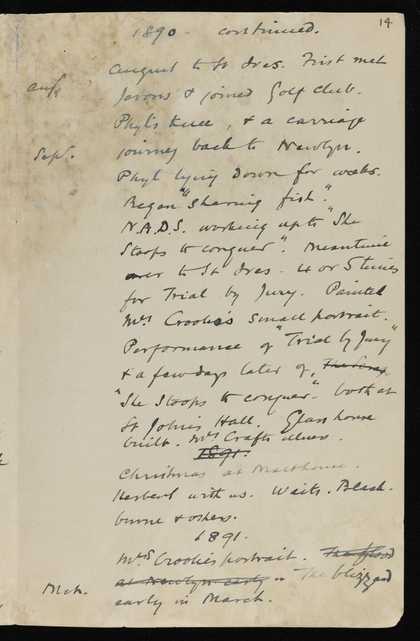 14
1890 - continued.
August to St Ives. First met
Aug Jevons & joined Golf club.
Phyl's knee, & a carriage
Sept. journey back to Newlyn.
Phyl lying down for weeks.
Began "Sharing fish".
N.A.D.S. working up to "She
Stoops to conquer". Meantime
over to St Ives 4 or 5 times
for Trial by Jury. Painted
Mrs Crooke's small portrait.
Performance of "Trial by Jury"
& a few days later of,
"She Stoops to conquer" - both at
St John's Hall. Glass house
built. Mrs Crafts
1891.
Christmas at Malthouse.
Herbert with us. Waits. Black-
burne & others.
1891.
Mrs Crooke's portrait. The flood
at Newlyn early in The blizzard
Mch. early in March.